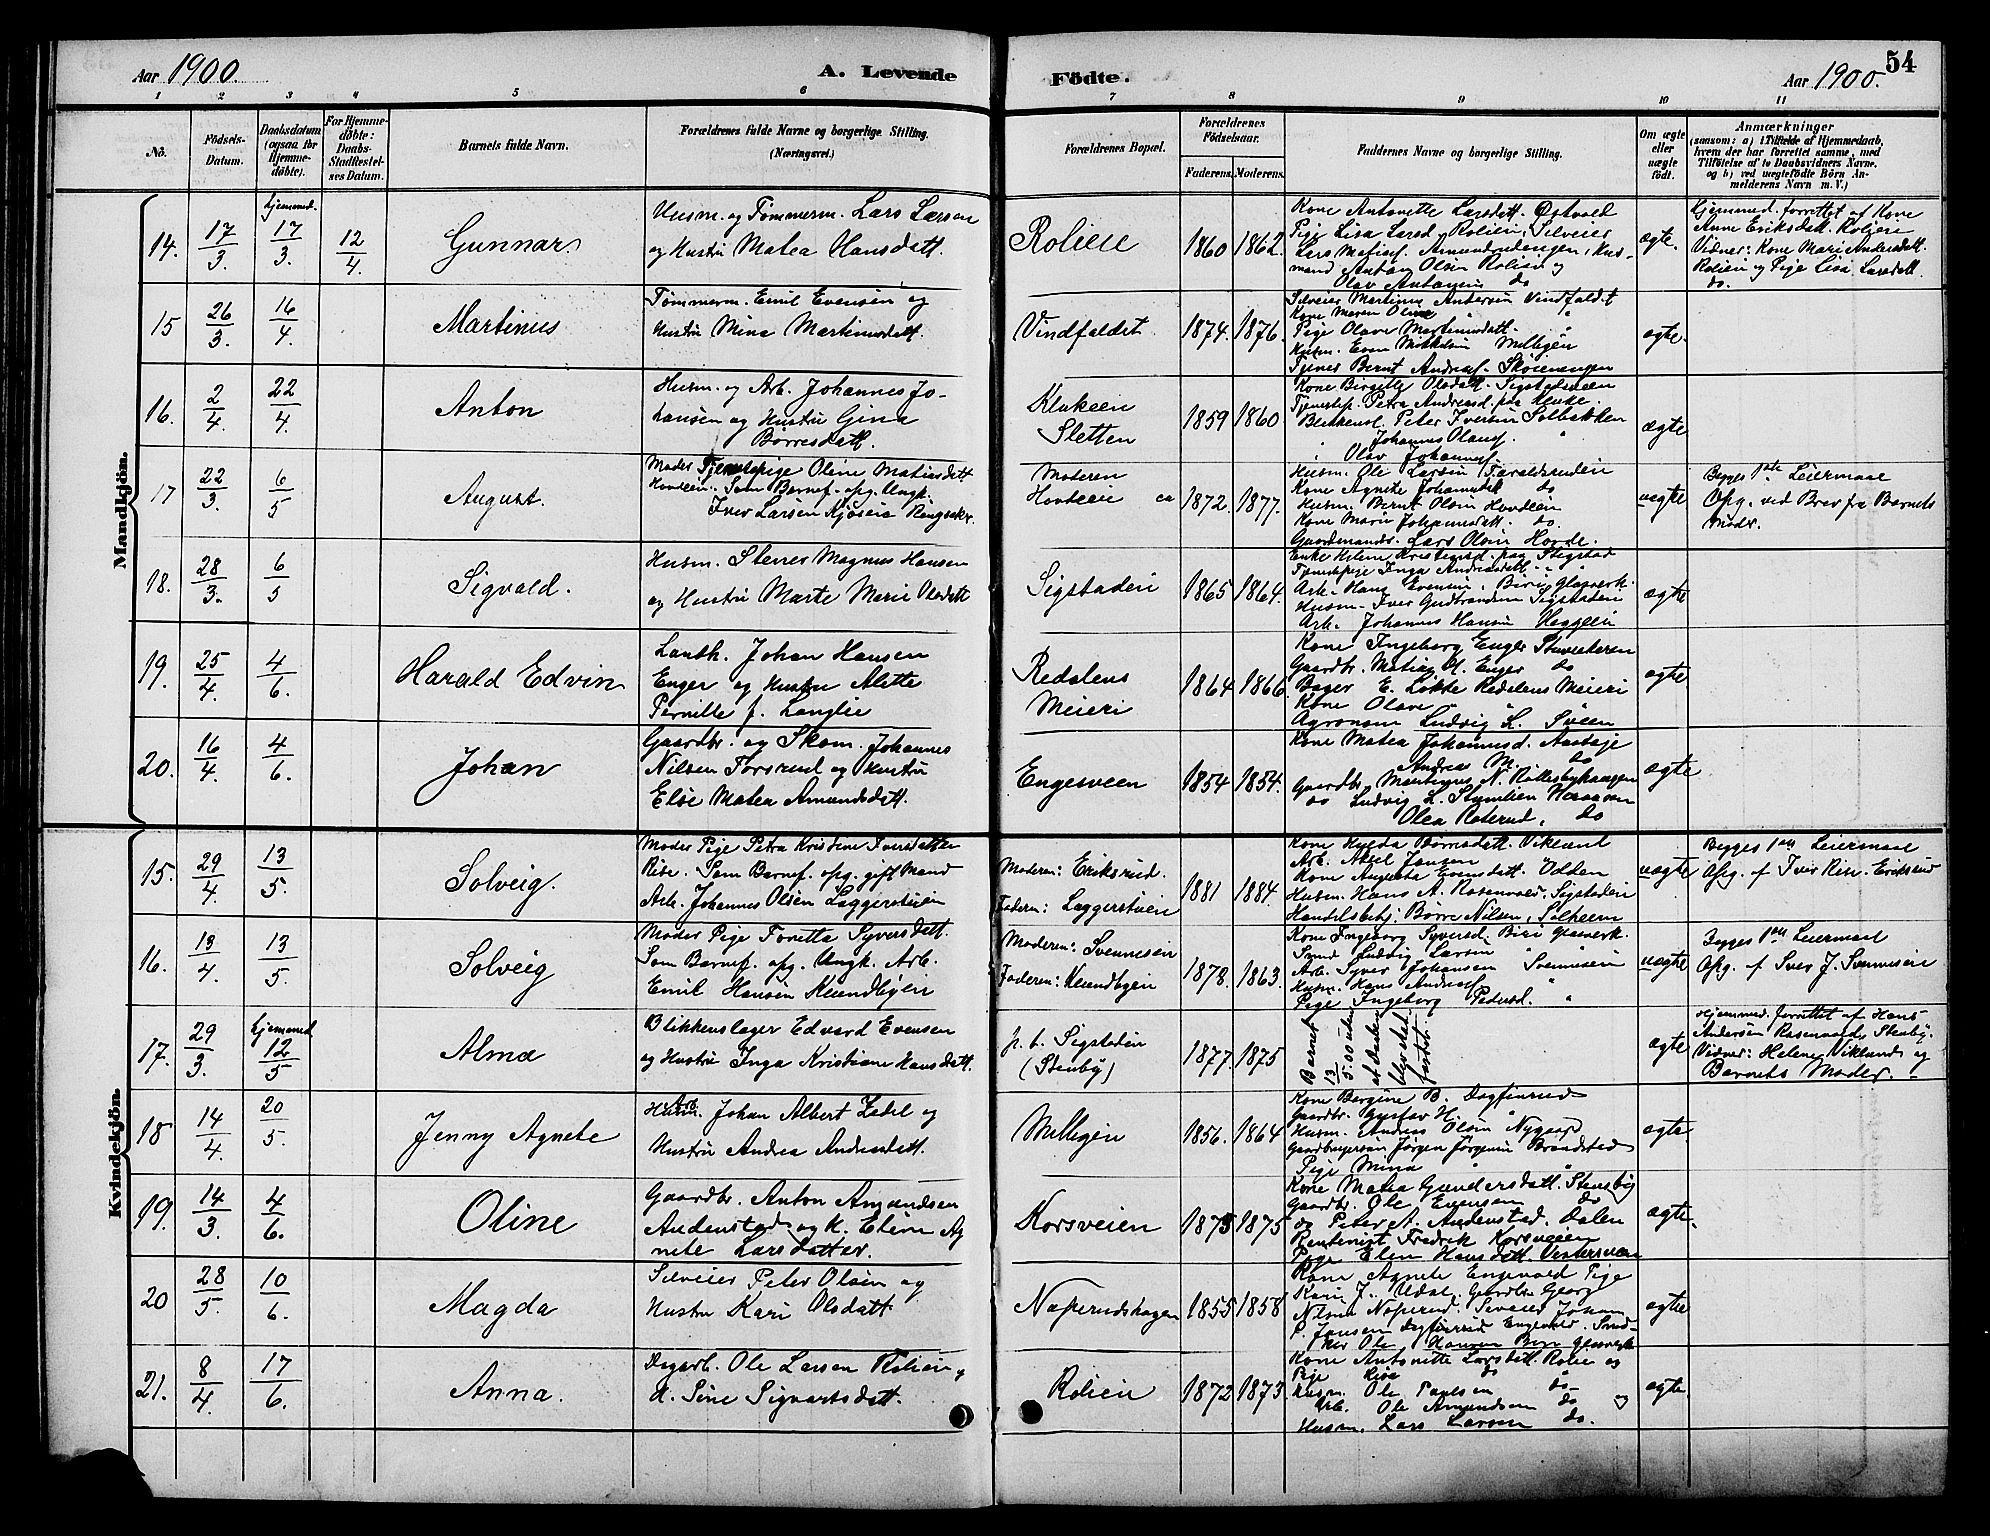 Aar 1900.
A. Levende
Födte.
Aar 1900.
54
1 2 3 4 5 6 7 8 9 10 11
No.
Födsels-
Datum.
Daabsdatum
(ogsaa for
Hjemme-
døbte).
For Hjemme-
døbte:
Daabs-
Stadfæstel-
ses Datum.
Barnets fulde Navn.
Forældrenes fulde Navne og borgerlige Stilling.
(Næringsvei.)
Forældrenes Bopæl.
Forældrenes
Födselsaar.
Faderens.
Moderens.
Faddernes Navne og borgerlige Stilling.
Om ægte
eller
uægte
født.
Anmærkninger
(saasom: a) i Tilfælde af Hjemmedaab,
hvem der har forrettet samme, med
Tilföielse af to Daabsvidners Navne,
og b) ved uægtefödte Börn An-
melderens Navn m. V.)
Mandkjön.
14. 17/3. hjemmed. 17/3. 12/4. Gunnar
Husm. og Tømmerm. Lars Larsen
og Hustru Matea Hansdatt.
Rolieie 1860 1862.
Kone Antonette Larsdatt. Østvold
Pige Lisa Larsd. Rolien, Selveier
Lars Matias. Amundrudengen, Hus-
mand Anton Olsen Rolien og
Olav Antonsen do
ægte.
Hjemmed. forrettet af Kone
Anne Eriksdatt. Roliene
Vidner: Kone Mari Andersdatt.
Rolien og Pige Lisa Larsdatt.
do.
15 26/3. 16/4. Martinus
Tømmerm. Emil Evensen og
Hustru Mina Martinusdatt.
Vindfaldet. 1874. 1876.
Selveier Martinus Andersen Vindfaldet
Kone Maren Oline "
Pige Olave Martinusdatt. "
Husm. Even Mikkelsen Milligen
Tjener Bernt Andreas. Skøienengen
ægte.
16. 2/4. 22/4. Anton
Husm. og Arb. Johannes Jo-
hansen og Hustru Gina
Børresdatt.
Klukeien
Sletten 1859 1860
Kone Birgitte Olsdatt. Sigstadeien
Tjenestep. Petra Andreasd. paa Kluke.
Blikkensl. Peter Iversen Solbakken
" Johannes Olaus. "
" Olav Johannes.
ægte
17 22/3. 6/5 August.
Moder Tjenestepige Oline Matiasdatt
Hovdeien. Som Barnef. opg. Ungk.
Iver Larsen Kjøseie Ringsaker.
Moderen
Hovdeeie ca 1872. 1877.
Husm. Ole Larsen Taraldsrudeien
Kone Agnete Johannesdatt. do
Husm. Bernt Olsen Hovdeien
Kone Marie Johannesdatt. do.
Gaardmands. Lars Olsen Hovde.
uægte
Begges 1ste Leiermaal
Opg. ved Brev fra Barnets
Moder.
18. 28/3. 6/5 Sigvald.
Husm. Stener Magnus Hansen
og Hustru Marte Marie Olsdatt
Sigstadeie 1865 1864.
Enke Helene Kristiansd. paa Sligstad
Tjenestepige Inga Andreasdatt. " "
Arb. Hans Evensen, Biri Glasverk.
Husm. Iver Gudbrandsen Sigstadeie
Arb. Johannes Hansen Haggeie
ægte
19. 25/4. 4/6. Harald Edvin
Landh. Johan Hansen
Enger og Hustru Alette
Pernille f. Langlie
Redalens
Meieri 1864 1866.
Kone Ingeborg Enger Stuvesteren
Gaardbr. Matias H. Enger do
Bager E. Løkke Redalens Meieri
Kone Olave " "
Agronom Ludvig L. Sveen
ægte
20. 16/4. 4/6. Johan
Gaardbr. og Skom. Johannes
Nilsen Forsrud og Hustru
Elise Matea Amundsdatt.
Engesveen 1854 1854.
Kone Matea Johannesd. Aasbøje
Andreas M. do
Gaardbr. Martinus N. Rollesbyhaugen
do Ludvig L. Stumlien
Olea Roterud, do
ægte
Kvindekjön.
15. 29/4. 13/5. Solveig.
Moder Pige Petra Kristine Iversdatter
Rise. Som Barnef. opg. gift Mand
Arb. Johannes Olsen Laggerstuen
Moderen: Eriksrud.
Faderen: Laggerstuen 1881 1884.
Kone Hulda Børresdatt. Vikland
Arb. Aksel Jansen
Kone Augusta Evensdatt. Odden
Husm. Hans A. Rosenvold, Sigstadeie
Handelsbetj. Børre Nilsen, Solheim
uægte
Begges 1ste Leiermaal
Opg. af Iver Rise. Eriksrud
16. 13/4. 13/5. Solveig
Moder Pige Tonetta Syversdatt.
Som Barnef. opg. Ungk. Arb.
Emil Hansen
Moderen: Svennesein
Faderen: 1878. 1863.
Kone Ingeborg Syversd. Biri Glasverk.
Smed Ludvig Larsen "
Arb. Syver Johansen Svennesein
Husm. Hans Andreas. "
Pige Ingeborg Pedersd. "
uægte
Begges 1ste Leiermaal
Opg. af Syver J. Svennesein
17. 29/3. hjemmed 12/5 Alma
Blikkenslager Edvard Evensen
og Hustru Inga Kristiane Hansdatt.
p. t. Sigstadein
(Stenby) 1877. 1875
Barnet
13/5.00 uden
at Daaben
blev stad-
fæstet.
ægte
Hjemmed. forrettet af Hans
Andersen Rosenvold, Stenby.
Vidner: Helene Vikland og
Barnets Moder. -
18 14/4. 20/5. Jenny Agnete
Arb.
Husm. Johan Albert Zabel og
Hustru Andrea Andersdatt.
Milligen 1856. 1864
Kone Bergine B. Dagfinrud
Gaardbr. Gustav H. "
Husm. Andreas Olsen Nygaard
Gaardbrugersøn Jørgen Jørgensen Braastad
Pige Mina " "
ægte
19. 14/3. 4/6. Oline
Gaardbr. Anton Amundsen
Audenstad og k. Eline Ag-
nete Larsdatter.
Korsveien 1873 1875
Kone Matea Gundersdatt. Stensby
Gaardbr. Ole Evensen do
do Peter A. Audenstad. Dalen
Rentenist Fredrik Korsveien
Pige Elen Hansdatt.
ægte.
20 28/5. 10/6. Magda
Selveier Peter Olsen og
Hustru Kari Olsdatt.
Næperudshagen 1855 1858
Kone Agnete Engevold Pige
Kari J. Udal, Gaardbr. Georg
Nilsen Næperud, Selveier Johan
P. Jansen Dagfinrud Engevold. Smed-
Ole Hansen Biri Glasverk
ægte
21. 8/4 17/6. Anna.
Dagarb. Ole Larsen Rolien og
H. Sine Sigvartsdatt.
Rolien 1872 1873
Kone Antonette Larsdatt. Rolie og
Pige Lisa do do
Husm. Ole Paulsen do
Arb. Ole Amundsen do og
Husm. Lars Larsen do.
ægte